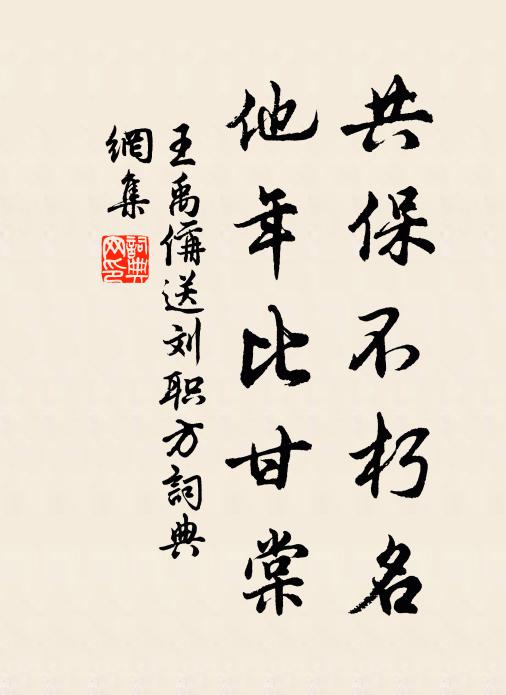 共保不朽名
他年比甘棠
王禹偁送刘职方詞典
網集
詞典網印